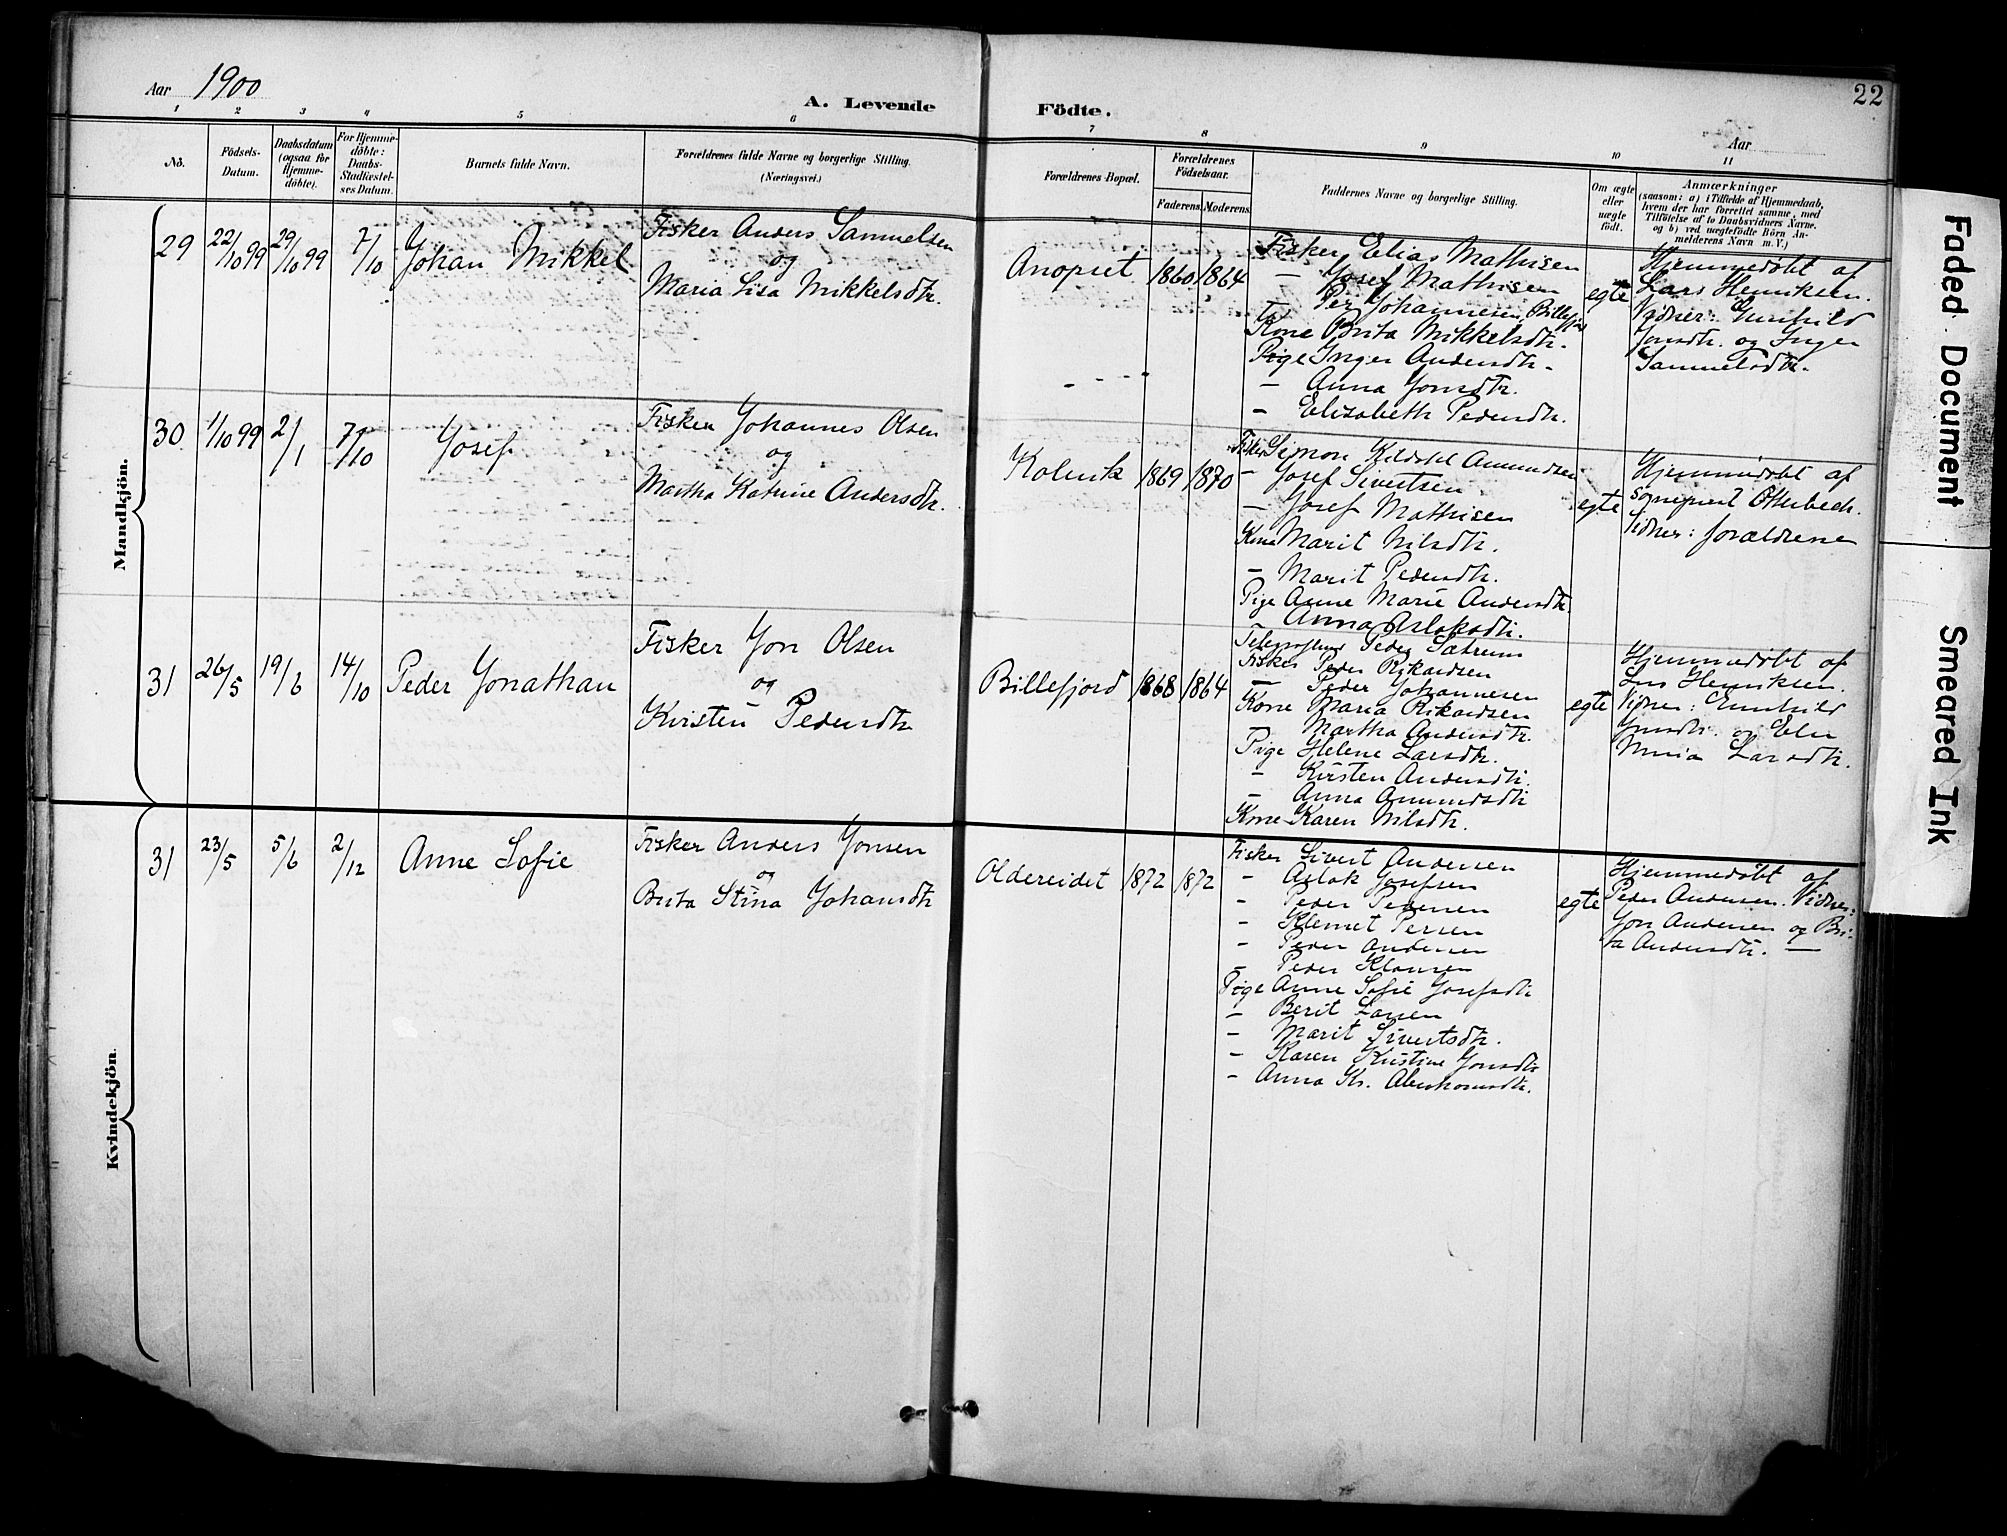 Aar 1900
A. Levende Födte.
22
Aar
1 2 3 4 5 6 7 8 9 10 11
No.
Födsels-
Datum.
Daabsdatum
(ogsaa for
Hjemme-
döbte).
For Hjemme-
döbte:
Daabs-
Stadfæstel-
ses Datum.
Barnets fulde Navn.
Forældrenes fulde Navne og borgerlige Stilling.
(Næringsvei.)
Forældrenes Bopæl.
Forældrenes
Födselsaar.
Faderens. Moderens.
Faddernes Navne og borgerlige Stilling.
Om ægte
eller
uægte
födt.
Anmærkninger
(saasom: a) i Tilfælde af Hjemmedaab,
hvem der har forrettet samme, med
Tilföielse af to Daabsvidners Navne.
og b) ved uægtefödte Börn An-
melderens Navn m. V.)
Mandkjön.
29 22/10 99 29/10 99 7/10 Johan Mikkel
Fisker Anders Samuelsen
og
Maria Lisa Mikkelsdtr.
Anopset 1860 1864
Fisker Elias Mathisen
— Josef Mathisen
— Per Johannesen, Billefjord
Kone Brita Mikkelsdtr.
Pige Inger Andersdtr.
— Anna Jonsdtr.
— Elizabeth Pedersdtr.
egte
Hjemmedøbt af
Lars Henriksen.
Vidner: Gunhild
Jonsdtr. og Inger
Samuelsdtr.
30 1/10 99 2/1 7/10 Josef
Fisker Johannes Olsen
og
Martha Katrine Andersdtr.
Kolvik 1869 1870
Fisker Simon Kildal Amundsen
— Josef Sivertsen
— Josef Mathisen
Kone Marit Nilsdtr.
— Marit Pedersdtr.
Pige Anne Marie Andersdtr.
Anna Aslaksdtr.
egte
Hjemmedøbt af
sognepræst Otterbech.
Vidner: forældrene
31 26/5 19/6 14/10 Peder Jonathan
Fisker Jon Olsen
og
Kirsten Pedersdtr
Billefjord 1868 1864
Peder Sætrum
Fisker Peder Rikardsen
— Peder Johannesen
Kone Maria Rikardsen
Martha Andersdtr.
Pige Helene Larsdtr.
— Kirsten Andersdtr.
— Anna Amundsdtr
Kone Karen Nilsdtr.
egte
Hjemmedøbt af
Lars Henriksen.
Vidner: Gunhild
Jonsdtr. og Elen
Maria Larsdtr.
Kvindekjön.
31 23/5 5/6 2/12 Anne Sofie
Fisker Anders Jonsen
og
Brita Stina Johansdtr
Oldereidet 1872 1872
Fisker Sivert Andersen
— Aslak Josefsen
— Peder Pedersen
— Klemet Persen
— Peder Andersen
— Peder Klausen
Pige Anne Sofie Josefsdtr
— Berit Larsen
— Marit Sivertsdtr.
— Karen Kristine Jonsdtr
— Anna Kr. Abrahamsdtr.
egte
Hjemmedøbt af
Peder Andersen. Vidner:
Jon Andersen og Bri-
ta Andersdtr. —
Faded Document
Smeared Ink